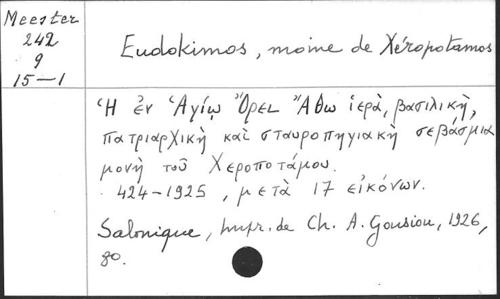 Meester
242
9
15-1
Eudokimos, moine de Xéropotamos
Ἡ ἐν Ἁγίῳ Ὄρει Ἄθω ἱερὰ, βασιλικὴ,
πατριαρχικὴ καὶ σταυροπηγιακὴ σεβάσμια
μονὴ τοῦ Χεροποτάμου.
424-1925, μετὰ 17 εἰκόνων.
Salonique, Impr. de Ch. A. Gousiou, 1926,
80.